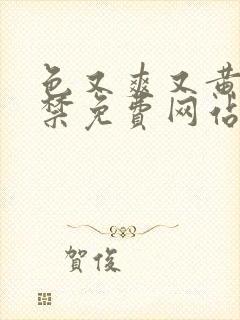 色又爽又黄
禁免费网站
贺俊